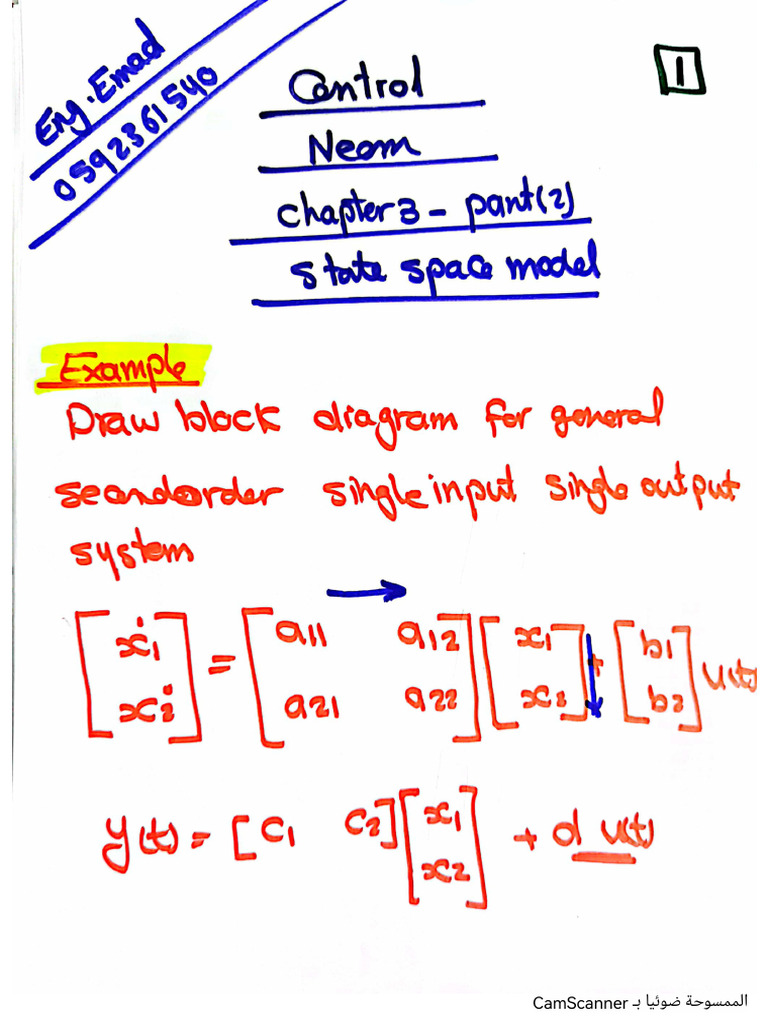 Eng. Emad
0592361540
1
Control
Neom
chapter 3 - part(2)
state space model
Example
Draw block diagram for general
secondorder single input single output
system
[ẋ1 ẋ2] = [a11 a12 a21 a22] [x1 x2] + [b1 b2] u(t)
y(t) = [c1 c2] [x1 x2] + d u(t)
الممسوحة ضوئيا بـ CamScanner